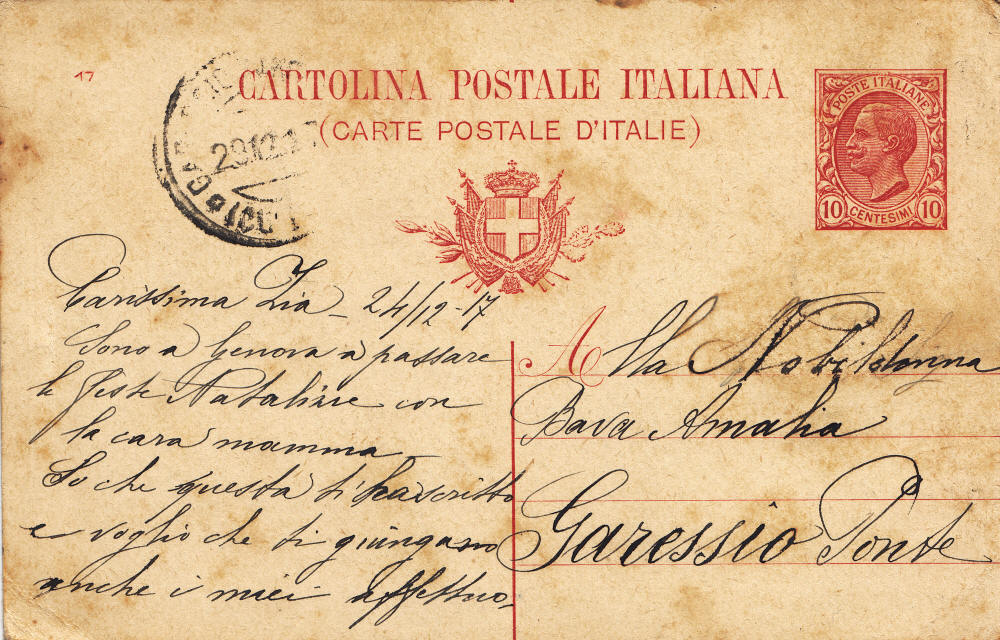 17
CARTOLINA POSTALE ITALIANA
(CARTE POSTALE D'ITALIE)
POSTE ITALIANE
10 CENTESIMI 10
29.12.1
Carissima Zia - 24/12-17
Sono a Genova a passare
le feste Natalizie con
la cara mamma
So che questa ti ha scritto
e voglio che ti giungano
anche i miei affettuo-
Alla Nobildonna
Bava Amalia
Garessio Ponte